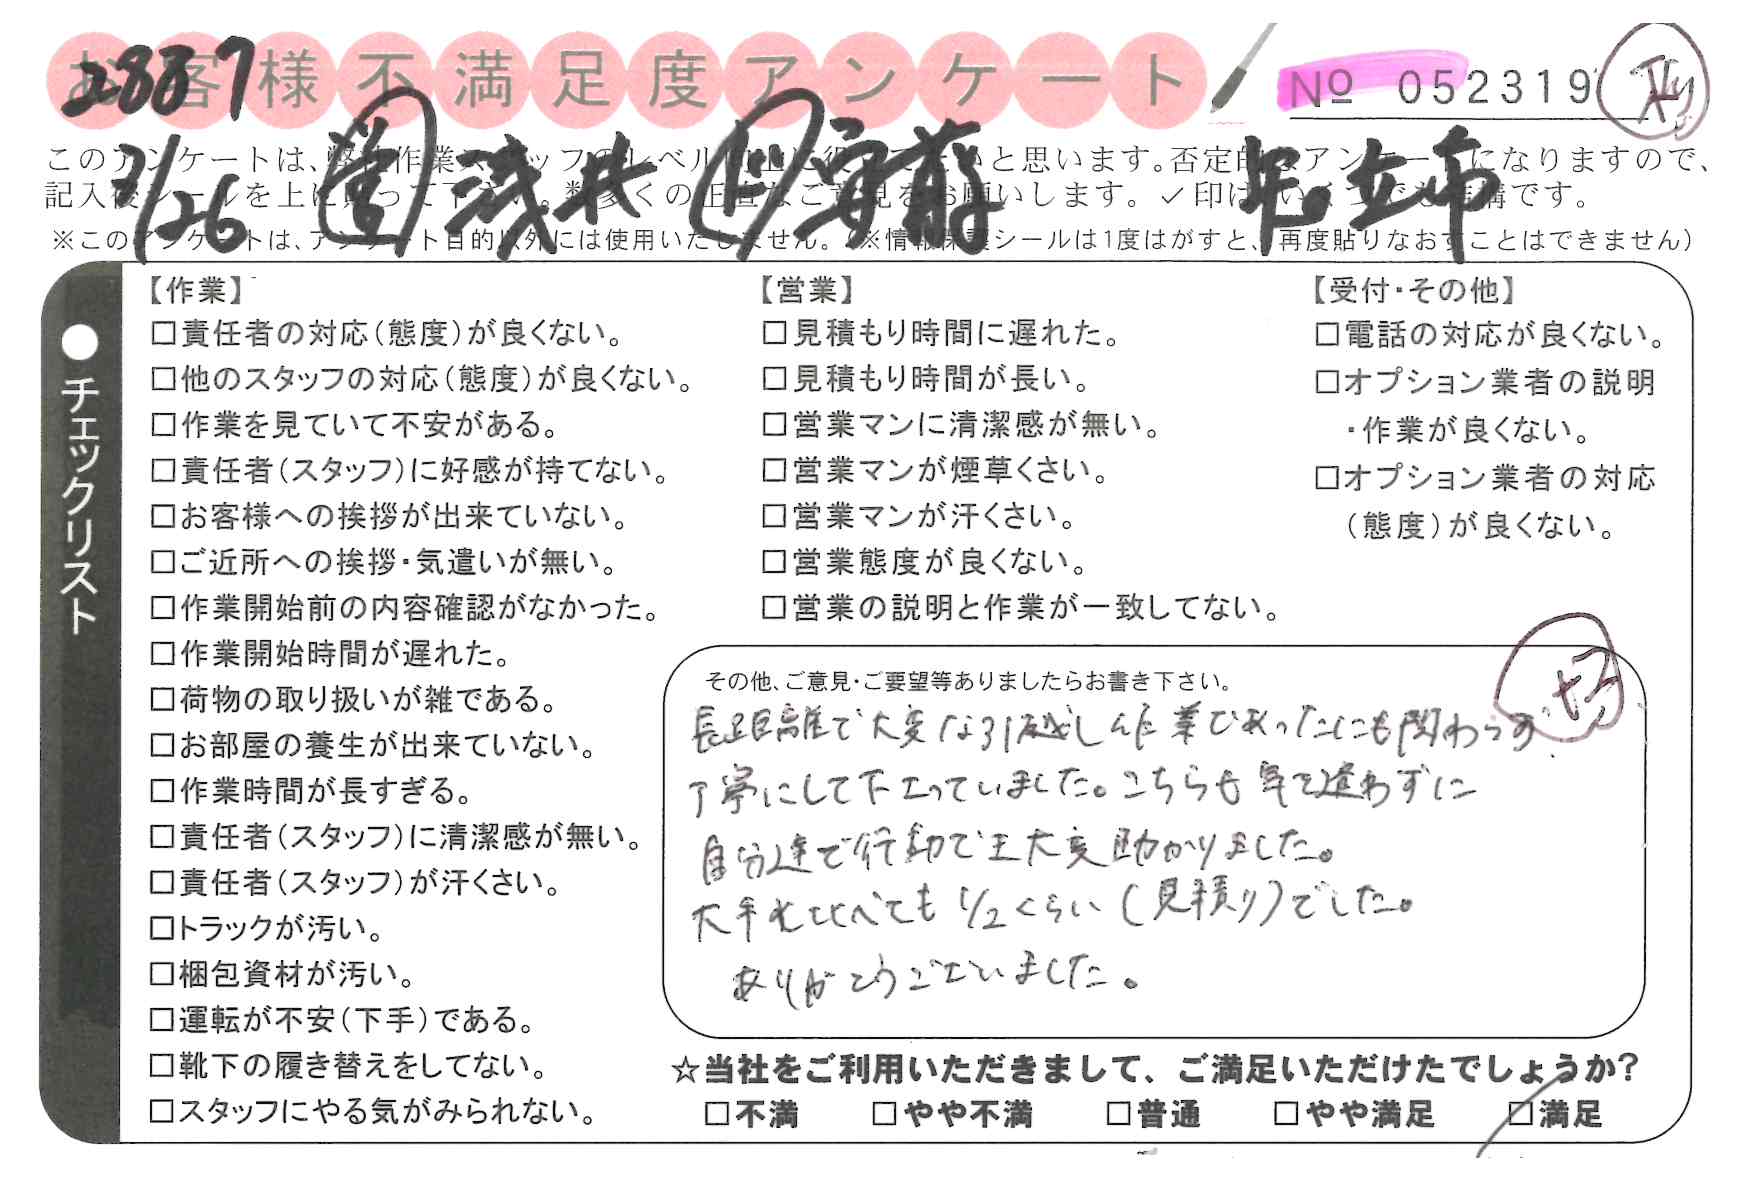 お客様不満足度アンケート
2887
№ 052319
7/26 営 浅井 ド 安前
足立市
このアンケートは、弊社作業スタッフのレベル向上に役立てたいと思います。否定的なアンケートになりますので、
記入後シールを上に貼って下さい。数多くの正直なご意見をお願いします。✓印はいくつでも結構です。
※このアンケートは、アンケート目的以外には使用いたしません。(※情報保護シールは1度はがすと、再度貼りなおすことはできません)
●チェックリスト
【作業】
□責任者の対応(態度)が良くない。
□他のスタッフの対応(態度)が良くない。
□作業を見ていて不安がある。
□責任者(スタッフ)に好感が持てない。
□お客様への挨拶が出来ていない。
□ご近所への挨拶・気遣いが無い。
□作業開始前の内容確認がなかった。
□作業開始時間が遅れた。
□荷物の取り扱いが雑である。
□お部屋の養生が出来ていない。
□作業時間が長すぎる。
□責任者(スタッフ)に清潔感が無い。
□責任者(スタッフ)が汗くさい。
□トラックが汚い。
□梱包資材が汚い。
□運転が不安(下手)である。
□靴下の履き替えをしてない。
□スタッフにやる気がみられない。
【営業】
□見積もり時間に遅れた。
□見積もり時間が長い。
□営業マンに清潔感が無い。
□営業マンが煙草くさい。
□営業マンが汗くさい。
□営業態度が良くない。
□営業の説明と作業が一致してない。
【受付・その他】
□電話の対応が良くない。
□オプション業者の説明
・作業が良くない。
□オプション業者の対応
(態度)が良くない。
その他、ご意見・ご要望等ありましたらお書き下さい。
長距離で大変な引越し作業であったにも関わらず
丁寧にして下さっていました。こちらも気を遣わずに
自分達で行動でき大変助かりました。
大手と比べても1/2くらい(見積り)でした。
ありがとうございました。
☆当社をご利用いただきまして、ご満足いただけたでしょうか?
□不満 □やや不満 □普通 □やや満足 □満足